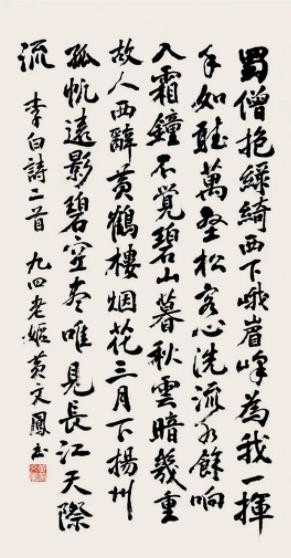 蜀僧抱綠綺西下峨眉峰為我一揮
手如聽萬壑松客心洗流水餘响
入霜鐘不覺碧山暮秋雲暗幾重
故人西辭黃鶴樓烟花三月下揚州
孤帆遠影碧空盡唯見長江天際
流
李白詩二首 九四老姬黃文鳳書